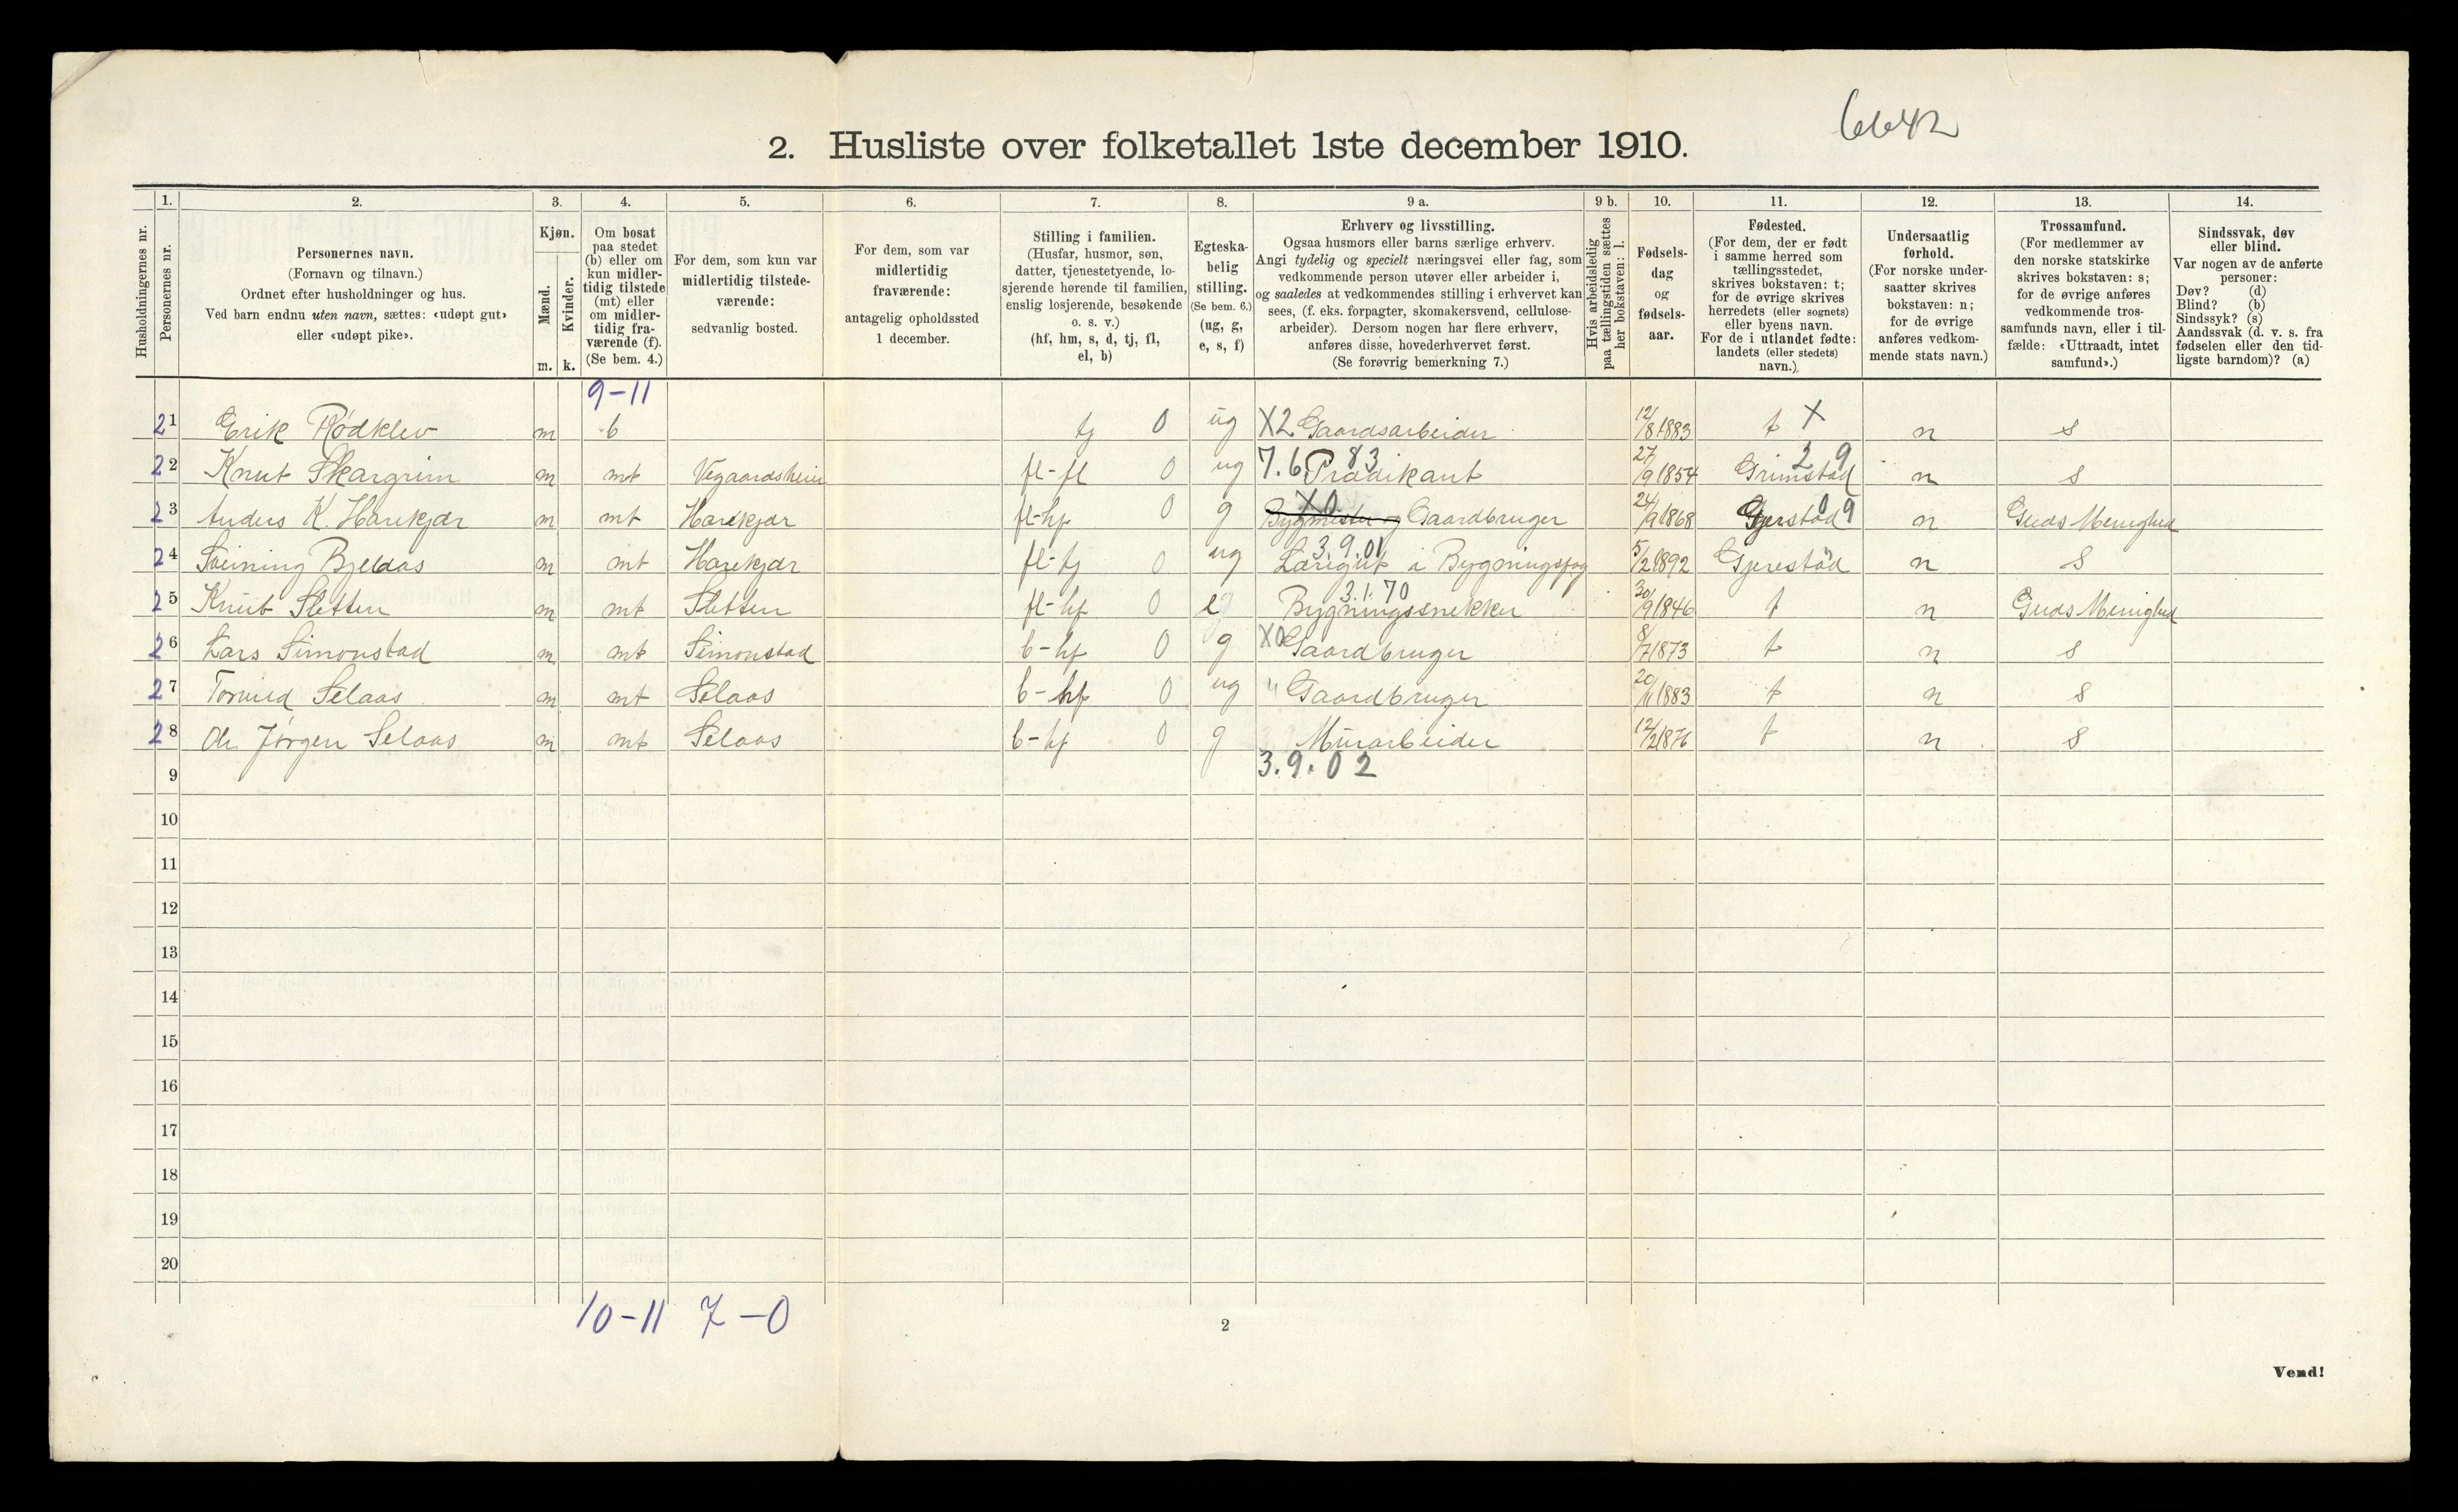 6642
2. Husliste over folketallet 1ste december 1910.
Husholdningernes nr.
1. Personernes nr.
2. Personernes navn.
(Fornavn og tilnavn.)
Ordnet efter husholdninger og hus.
Ved barn endnu uten navn, sættes: «udøpt gut»
eller «udøpt pike».
3. Kjøn.
Mænd. Kvinder.
m. k.
4. Om bosat
paa stedet
(b) eller om
kun midler-
tidig tilstede
(mt) eller
om midler-
tidig fra-
værende (f).
(Se bem. 4.)
5. For dem, som kun var
midlertidig tilstede-
værende:
sedvanlig bosted.
6. For dem, som var
midlertidig
fraværende:
antagelig opholdssted
1 december.
7. Stilling i familien.
(Husfar, husmor, søn,
datter, tjenestetyende, lo-
sjerende hørende til familien,
enslig losjerende, besøkende
o. s. v.)
(hf, hm, s, d, tj, fl,
el, b)
8. Egteska-
belig
stilling.
(Se bem. 6.)
(ug, g,
e, s, f)
9 a. Erhverv og livsstilling.
Ogsaa husmors eller barns særlige erhverv.
Angi tydelig og specielt næringsvei eller fag, som
vedkommende person utøver eller arbeider i,
og saaledes at vedkommendes stilling i erhvervet kan
sees, (f. eks. forpagter, skomakersvend, cellulose-
arbeider). Dersom nogen har flere erhverv,
anføres disse, hovederhvervet først.
(Se forøvrig bemerkning 7.)
9 b. Hvis arbeidsledig
paa tællingstiden sættes
her bokstaven: l.
10. Fødsels-
dag
og
fødsels-
aar.
11. Fødested.
(For dem, der er født
i samme herred som
tællingsstedet,
skrives bokstaven: t;
for de øvrige skrives
herredets (eller sognets)
eller byens navn.
For de i utlandet fødte:
landets (eller stedets)
navn.)
12. Undersaatlig
forhold.
(For norske under-
saatter skrives
bokstaven: n;
for de øvrige
anføres vedkom-
mende stats navn.)
13. Trossamfund.
(For medlemmer av
den norske statskirke
skrives bokstaven: s;
for de øvrige anføres
vedkommende tros-
samfunds navn, eller i til-
fælde: «Uttraadt, intet
samfund».)
14. Sindssvak, døv
eller blind.
Var nogen av de anførte
personer:
Døv? (d)
Blind? (b)
Sindssyk? (s)
Aandssvak (d. v. s. fra
fødselen eller den tid-
ligste barndom)? (a)
9-11
2 1 Erik Rødklev m b tj 0 ug X2 Gaardsarbeider 12/8 1883 t X n s
2 2 Knut Skargrim m mt Vegaardsheien fl-fl 0 ug 7.6.83 Prædikant 27/9 1854 Grimstad 2 9 n s
2 3 Anders K. Harekjær m mt Harekjær fl-hf 0 g X0 Bygmester og Gaardbruger 24/9 1868 Gjerstad 09 n Guds Menighed
2 4 Sveining Bjellaas m mt Harekjær fl-tj 0 ug 3.9.01 Læregut i Bygningsfag 5/2 1892 Gjerestad n s
2 5 Knut Sletten m mt Sletten fl-hf 0 e 3.1.70 Bygningssnekker 30/9 1846 t n Guds Menighed
2 6 Lars Simonstad m mt Simonstad b-hf 0 g X0 Gaardbruger 8/7 1873 t n s
2 7 Torvild Selaas m mt Selaas b-hf 0 ug " Gaardbruger 20/11 1883 t n s
2 8 Ole Jørgen Selaas m mt Selaas b-hf 0 g Murarbeider 12/2 1876 t n s
9 3.9.02
10
11
12
13
14
15
16
17
18
19
20
10-11 7-0
2
Vend!